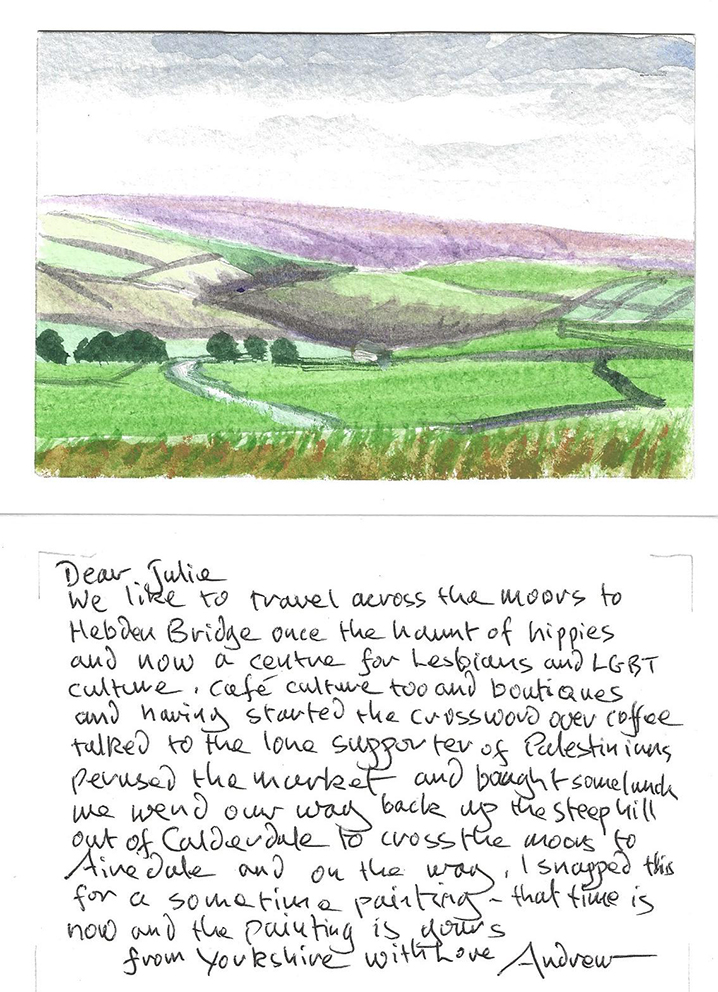 Dear Julie
We like to travel across the moors to
Hebden Bridge once the haunt of hippies
and now a centre for Lesbians and LGBT
culture. Café culture too and boutiques
and having started the crossword over coffee
talked to the lone supporter of Palestinians
perused the market and bought some lunch
we wend our way back up the steep hill
out of Calderdale to cross the moors to
Airedale and on the way, I snapped this
for a sometime painting - that time is
now and the painting is yours
from Yorkshire with Love Andrew